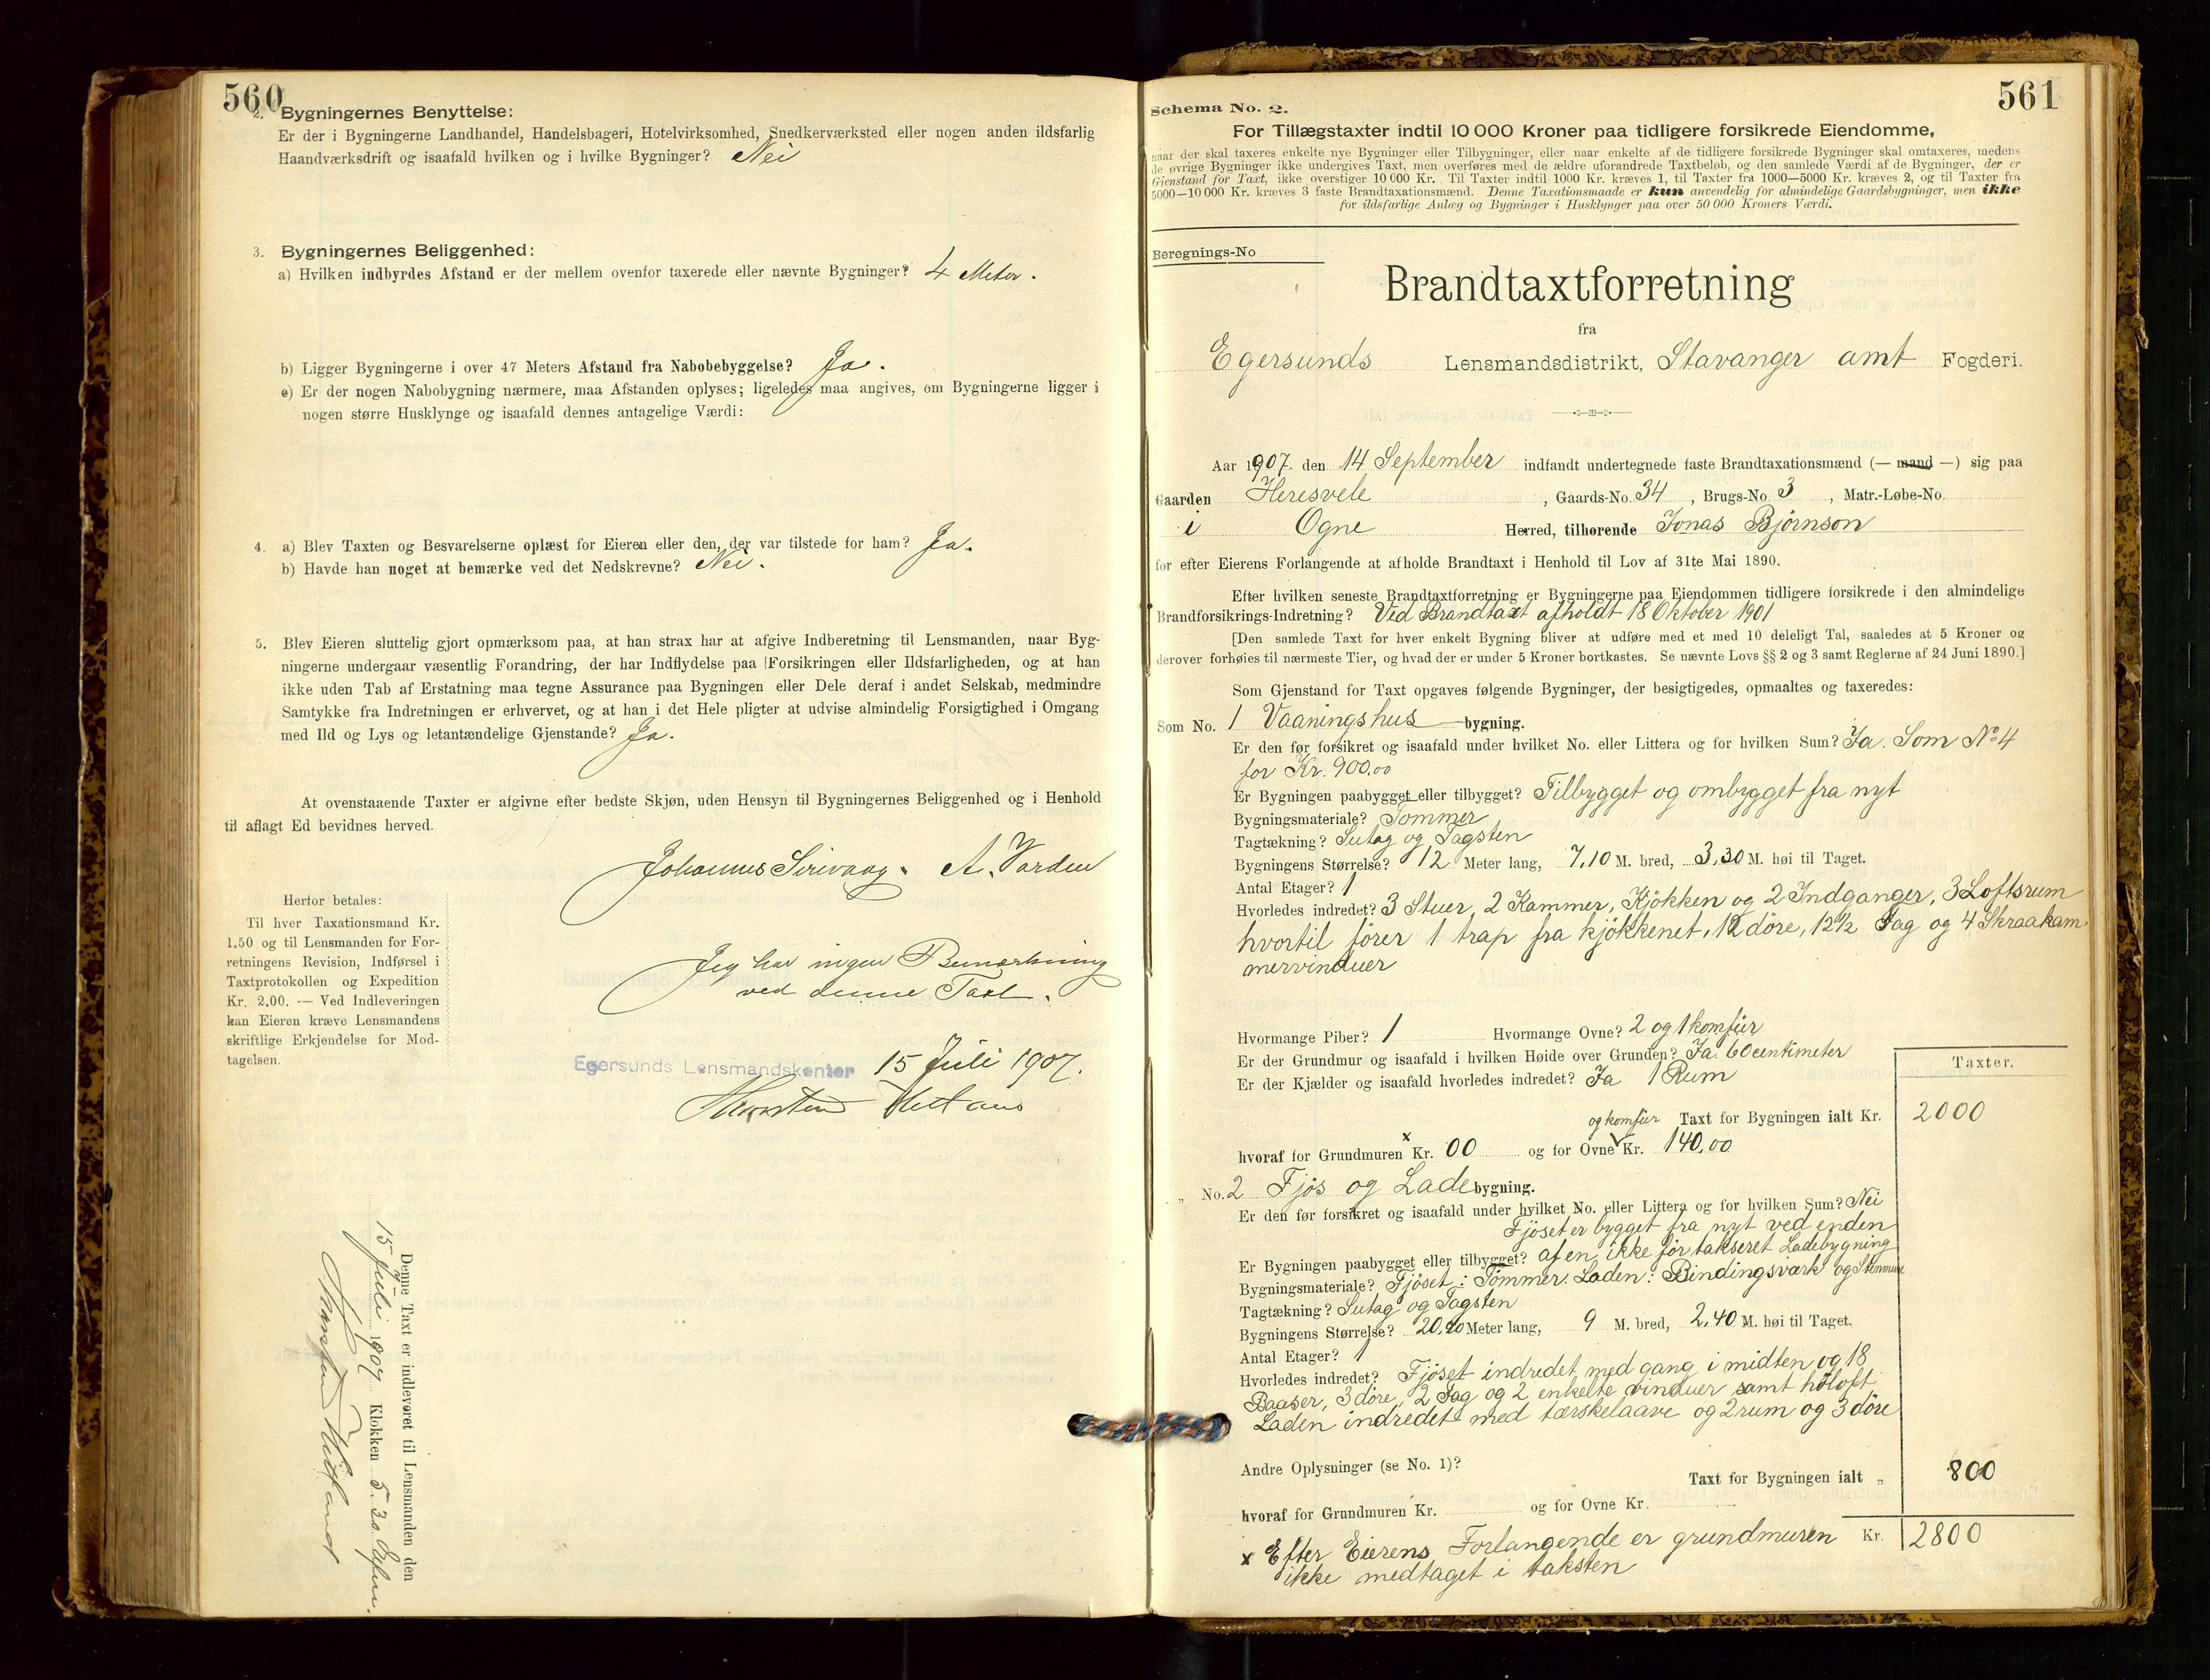 560
2. Bygningernes Benyttelse:
Er der i Bygningerne Landhandel, Handelsbageri, Hotelvirksomhed, Snedkerværksted eller nogen anden ildsfarlig
Haandværksdrift og isaafald hvilken og i hvilke Bygninger? Nei
3. Bygningernes Beliggenhed:
a) Hvilken indbyrdes Afstand er der mellem ovenfor taxerede eller nævnte Bygninger? 4 Meter.
b) Ligger Bygningerne i over 47 Meters Afstand fra Nabobebyggelse? Ja.
c) Er der nogen Nabobygning nærmere, maa Afstanden oplyses; ligeledes maa angives, om Bygningerne ligger i
nogen større Husklynge og isaafald dennes antagelige Værdi:
4. a) Blev Taxten og Besvarelserne oplæst for Eieren eller den, der var tilstede for ham? Ja.
b) Havde han noget at bemærke ved det Nedskrevne? Nei.
5. Blev Eieren sluttelig gjort opmærksom paa, at han strax har at afgive Indberetning til Lensmanden, naar Byg-
ningerne undergaar væsentlig Forandring, der har Indflydelse paa Forsikringen eller Ildsfarligheden, og at han
ikke uden Tab af Erstatning maa tegne Assurance paa Bygningen eller Dele deraf i andet Selskab, medmindre
Samtykke fra Indretningen er erhvervet, og at han i det Hele pligter at udvise almindelig Forsigtighed i Omgang
med Ild og Lys og letantændelige Gjenstande? Ja.
At ovenstaaende Taxter er afgivne efter bedste Skjøn, uden Hensyn til Bygningernes Beliggenhed og i Henhold
til aflagt Ed bevidnes herved.
Johannes Sirivaag. A. Varden
Herfor betales:
Til hver Taxationsmand Kr.
1.50 og til Lensmanden for For-
retningens Revision, Indførsel i
Taxtprotokollen og Expedition
Kr. 2.00. — Ved Indleveringen
kan Eieren kræve Lensmandens
skriftlige Erkjendelse for Mod-
tagelsen.
Jeg har ingen Bemærkning
ved denne Taxt.
Egersunds Lensmandskontor 15 Juli 1907.
Denne Taxt er indleveret til Lensmanden den
15 Juli 1907 Klokken 5.30
561
Schema No. 2.
For Tillægstaxter indtil 10 000 Kroner paa tidligere forsikrede Eiendomme,
naar der skal taxeres enkelte nye Bygninger eller Tilbygninger, eller naar enkelte af de tidligere forsikrede Bygninger skal omtaxeres, medens
de øvrige Bygninger ikke undergives Taxt, men overføres med de ældre uforandrede Taxtbeløb, og den samlede Værdi af de Bygninger, der er
Gjenstand for Taxt, ikke overstiger 10 000 Kr. Til Taxter indtil 1000 Kr. kræves 1, til Taxter fra 1000—5000 Kr. kræves 2, og til Taxter fra
5000—10 000 Kr. kræves 3 faste Brandtaxationsmænd. Denne Taxationsmaade er kun anvendelig for almindelige Gaardsbygninger, men ikke
for ildsfarlige Anlæg og Bygninger i Husklynger paa over 50 000 Kroners Værdi.
Beregnings-No
Brandtaxtforretning
fra
Egersunds Lensmandsdistrikt, Stavanger amt Fogderi.
Aar 1907. den 14 September indfandt undertegnede faste Brandtaxationsmænd (— mand —) sig paa
Gaarden Heresvele, Gaards-No. 34, Brugs-No. 3, Matr.-Løbe-No.
i Ogne Herred, tilhørende Jonas Bjørnson
for efter Eierens Forlangende at afholde Brandtaxt i Henhold til Lov af 31te Mai 1890.
Efter hvilken seneste Brandtaxtforretning er Bygningerne paa Eiendommen tidligere forsikrede i den almindelige
Brandforsikrings-Indretning? Ved Brandtaxt afholdt 18 Oktober 1901
[Den samlede Taxt for hver enkelt Bygning bliver at udføre med et med 10 deleligt Tal, saaledes at 5 Kroner og
derover forhøies til nærmeste Tier, og hvad der er under 5 Kroner bortkastes. Se nævnte Lovs §§ 2 og 3 samt Reglerne af 24 Juni 1890.]
Som Gjenstand for Taxt opgaves følgende Bygninger, der besigtigedes, opmaaltes og taxeredes:
Som No. 1 Vaaningshus bygning.
Er den før forsikret og isaafald under hvilket No. eller Littera og for hvilken Sum? Ja. Som No 4
for Kr. 900.00
Er Bygningen paabygget eller tilbygget? Tilbygget og ombygget fra nyt
Bygningsmateriale? Tømmer
Tagtækning? Sutag og Tagsten
Bygningens Størrelse? 12 Meter lang, 7,10 M. bred, 3,30 M. høi til Taget.
Antal Etager? 1
Hvorledes indredet? 3 Stuer, 2 Kammer, Kjökken og 2 Indganger, 3 Loftsrum
hvortil fører 1 trap fra kjökkenet, 12 döre, 12½ Fag og 4 Skraakam-
mervinduer
Hvormange Piber? 1 Hvormange Ovne? 2 og 1 komfür
Er der Grundmur og isaafald i hvilken Høide over Grunden? Ja. 60 centimeter
Er der Kjælder og isaafald hvorledes indredet? Ja 1 Rum
Taxter.
og komfür Taxt for Bygningen ialt Kr. 2000
hvoraf for Grundmuren x Kr. 00 og for Ovne Kr. 140,00
„ No. 2 Fjøs og Lade bygning.
Er den før forsikret og isaafald under hvilket No. eller Littera og for hvilken Sum? Nei
Fjöset er bygget fra nyt ved enden
Er Bygningen paabygget eller tilbygget? af en ikke før takseret Ladebygning
Bygningsmateriale? Fjöset: Tömmer. Laden: Bindingsværk og Stenmure
Tagtækning? Sutag og Tagsten
Bygningens Størrelse? 20,20 Meter lang, 9 M. bred, 2,40 M. høi til Taget.
Antal Etager? 1
Hvorledes indredet? Fjöset indredet med gang i midten og 18
Baaser, 3 döre, 2 Fag og 2 enkelte vinduer samt höloft
Laden indredet med tærskelaave og 2 rum og 3 döre
Andre Oplysninger (se No. 1)?
Taxt for Bygningen ialt „ 800
hvoraf for Grundmuren Kr. og for Ovne Kr.
Kr. 2800
x Efter Eierens Forlangende er grundmuren
ikke medtaget i taksten